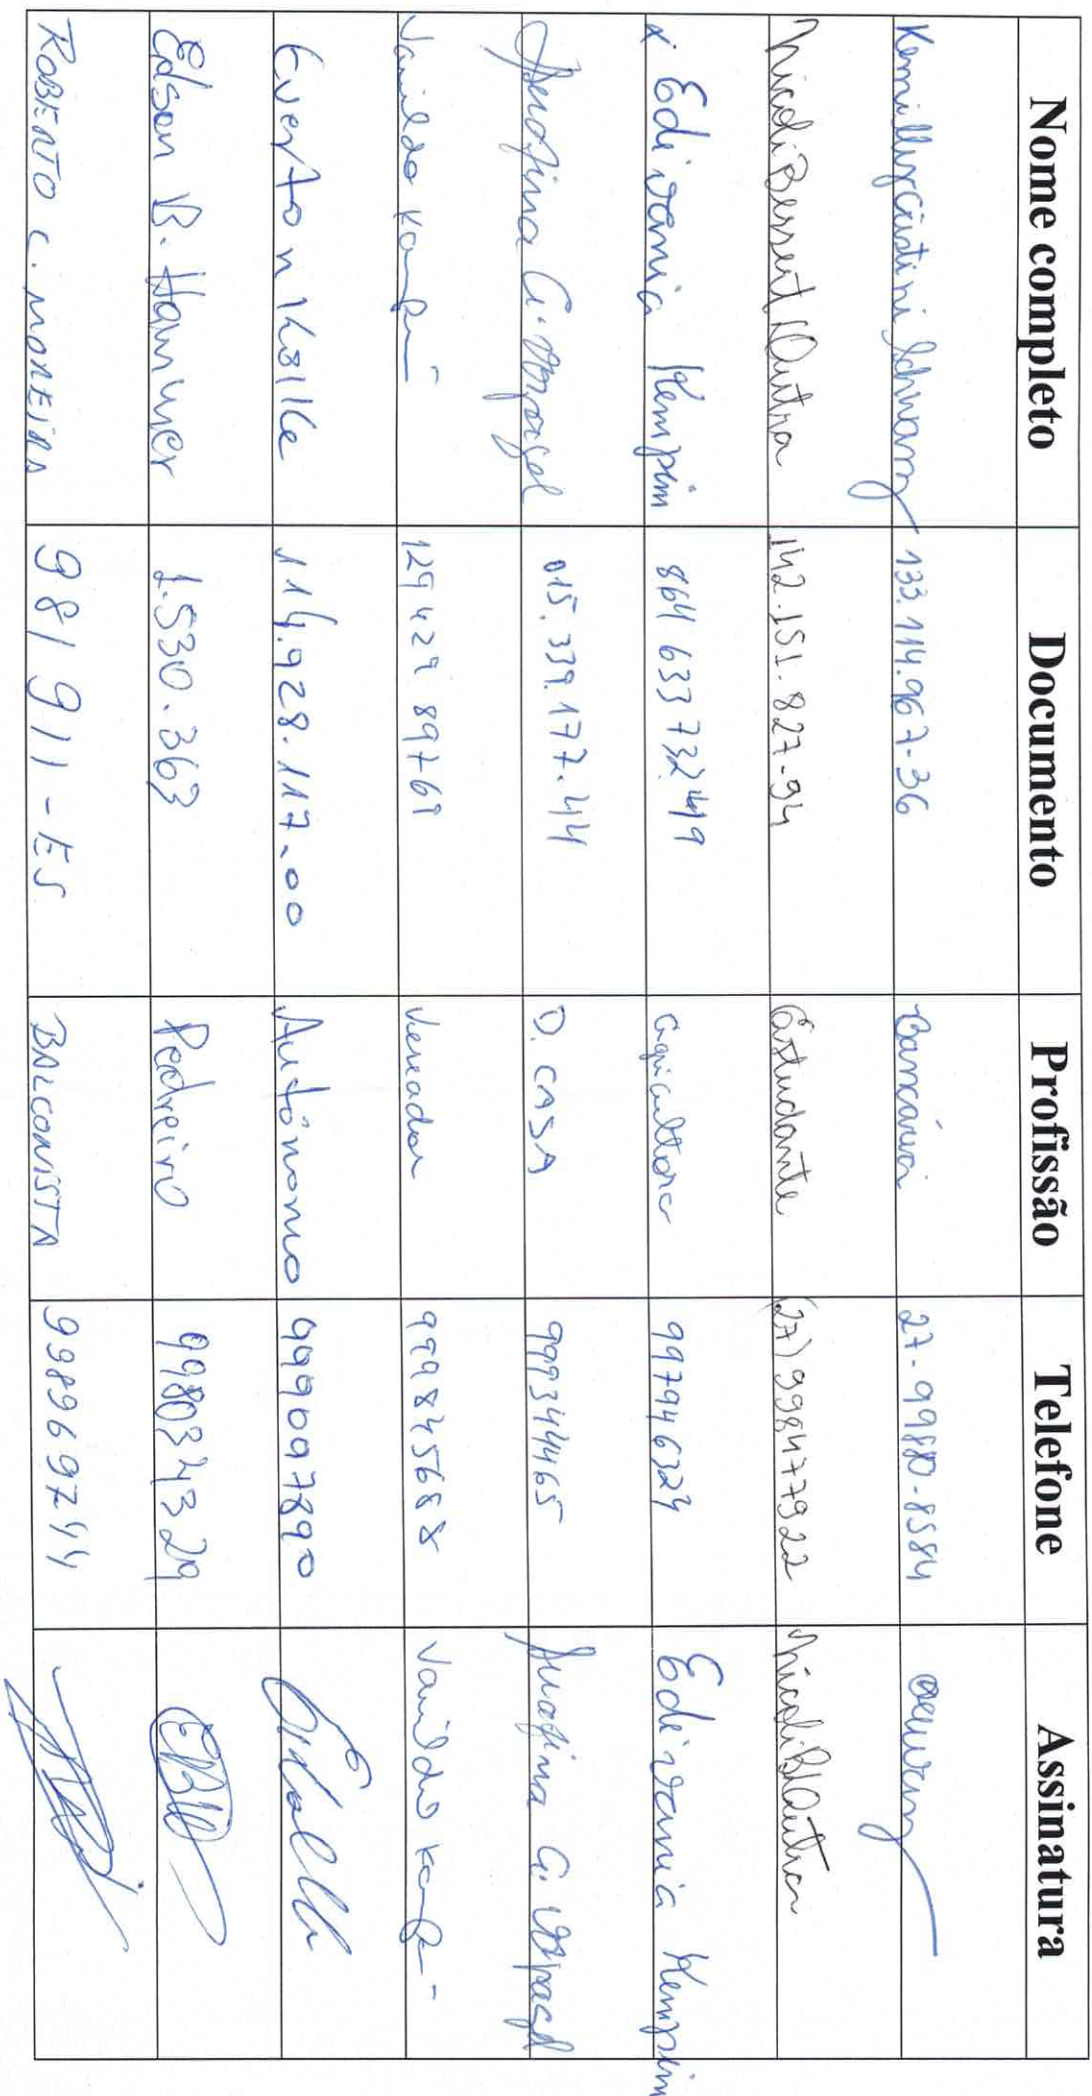 Nome completo Documento Profissão Telefone Assinatura
Kemilly Cristini Schwanz 133.114.967-36 Bancária 27-99880-8584
Nicoli Bessert Dutra 142.151.827-94 Estudante (27) 998477922 Nicoli B Dutra
x Edivania Kempim 864 633 732 449 agricultora 99794 6324 Edivania Kempim
015.339.177-44 D. CASA 999344465
Vanildo 129 429 897 69 Vereador 99984568 Vanildo
Everton 114.928.117-00 Autônomo 999097890
Edson B. Hammer 1.530.363 Pedreiro 998034329 EBH
ROBERTO C. MOREIRA 981911-ES BALCONISTA 998969744